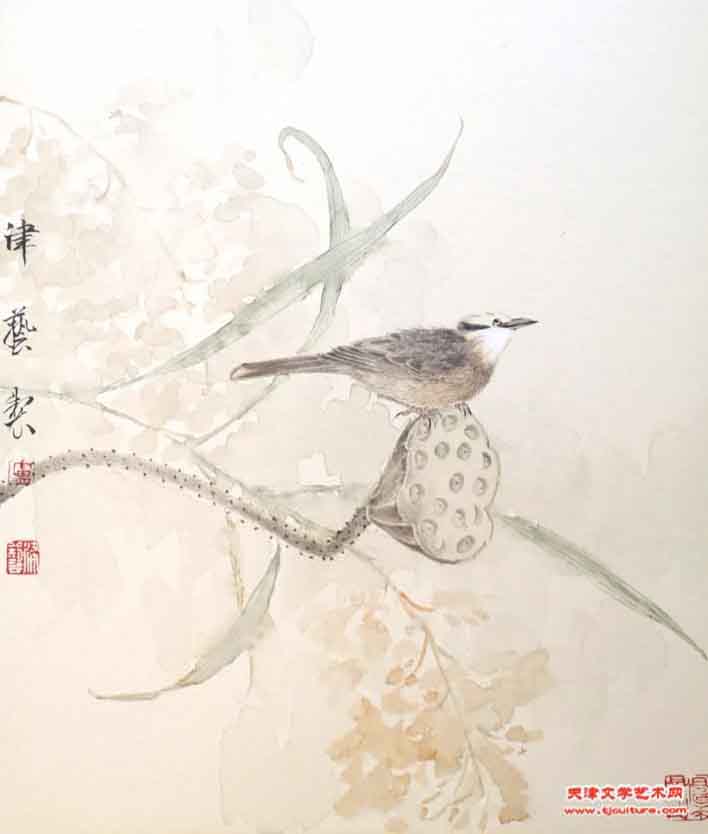 津藝製
天津文学艺术网
www.tjculture.com